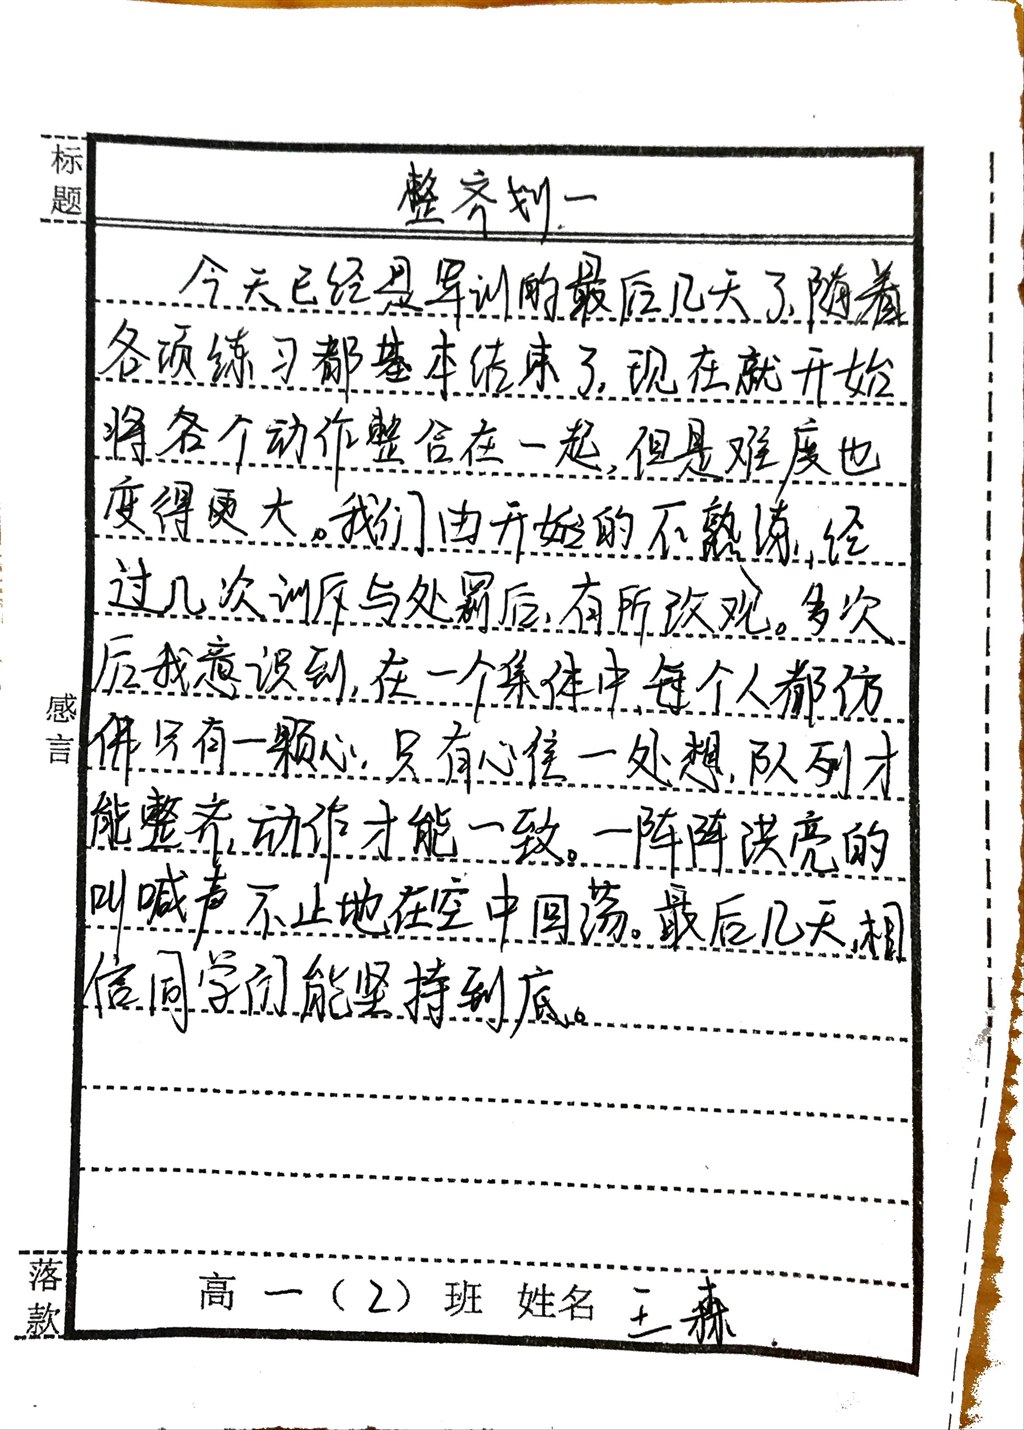 标题
整齐划一
今天已经是军训的最后几天了,随着
各项练习都基本结束了,现在就开始
将各个动作整合在一起,但是难度也
度得更大。我们由开始的不熟练,经
过几次训斥与处罚后,有所改观。多次
后我意识到,在一个集体中,每个人都仿
佛只有一颗心,只有心往一处想,队列才
能整齐,动作才能一致。一阵阵洪亮的
叫喊声不止地在空中回荡。最后几天,相
信同学们能坚持到底。
感言
落款
高一(2)班 姓名 王森